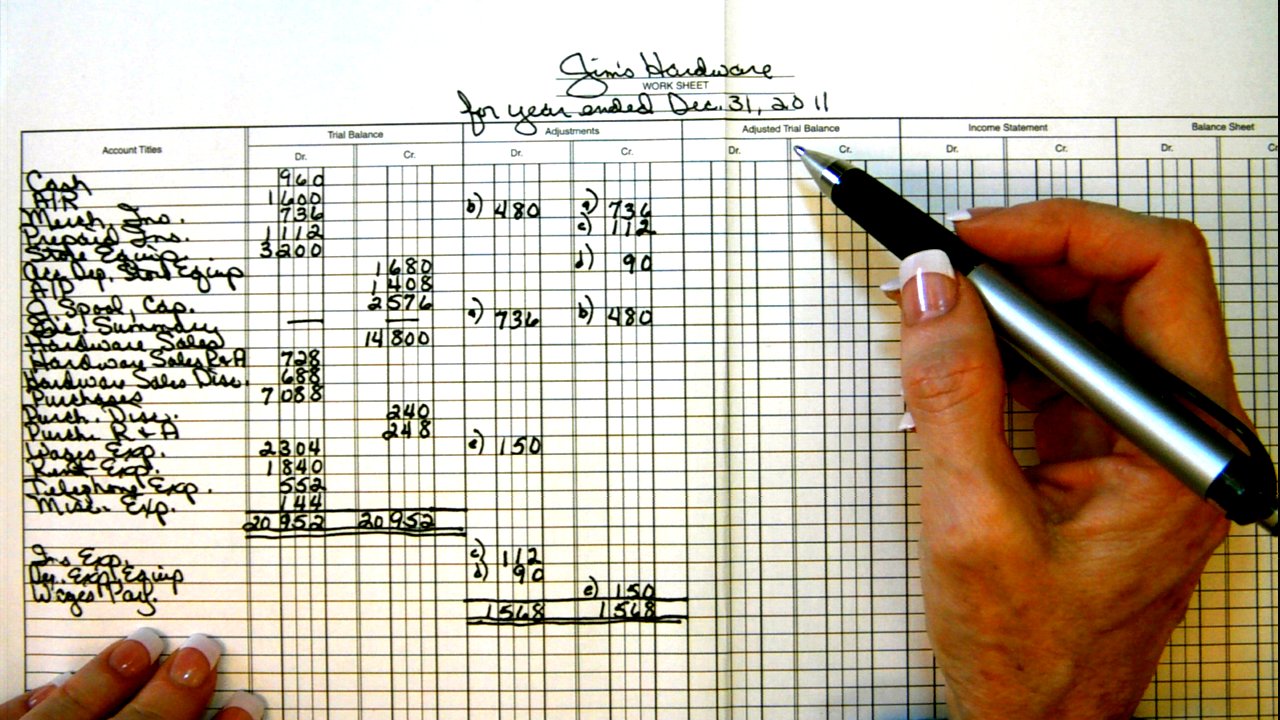 Jim's Hardware
WORK SHEET
for year ended Dec. 31, 2011
Account Titles Trial Balance Adjustments Adjusted Trial Balance Income Statement Balance Sheet
Dr. Cr. Dr. Cr. Dr. Cr. Dr. Cr. Dr.
Cash 960
A/R 1 600
Merch. Inv. 736 b) 480 a) 736
Prepaid Ins. 1 112 c) 112
Store Equip. 3200
Acc. Dep. Store Equip 1 680 d) 90
A/P 1 408
Spool, Cap. 2576
Inc. Summary — — a) 736 b) 480
Hardware Sales 14 800
Hardware Sales R&A 728
Hardware Sales Disc. 688
Purchases 7 088
Purch. Disc. 240
Purch. R & A 248
Wages Exp. 2304 e) 150
Rent Exp. 1840
Telephone Exp. 552
Misc. Exp. 144
20 952 20 952
Ins Exp. c) 112
Dep. Exp. Equip d) 90
Wages Pay. e) 150
1568 1568